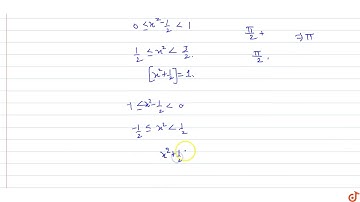 0 ≤ x² - 1/2 < 1
1/2 ≤ x² < 3/2.
[x² + 1/2] = 1.
-1 ≤ x² - 1/2 < 0
-1/2 ≤ x² < 1/2
x² + 1/2
π/2 + → π
π/2 .